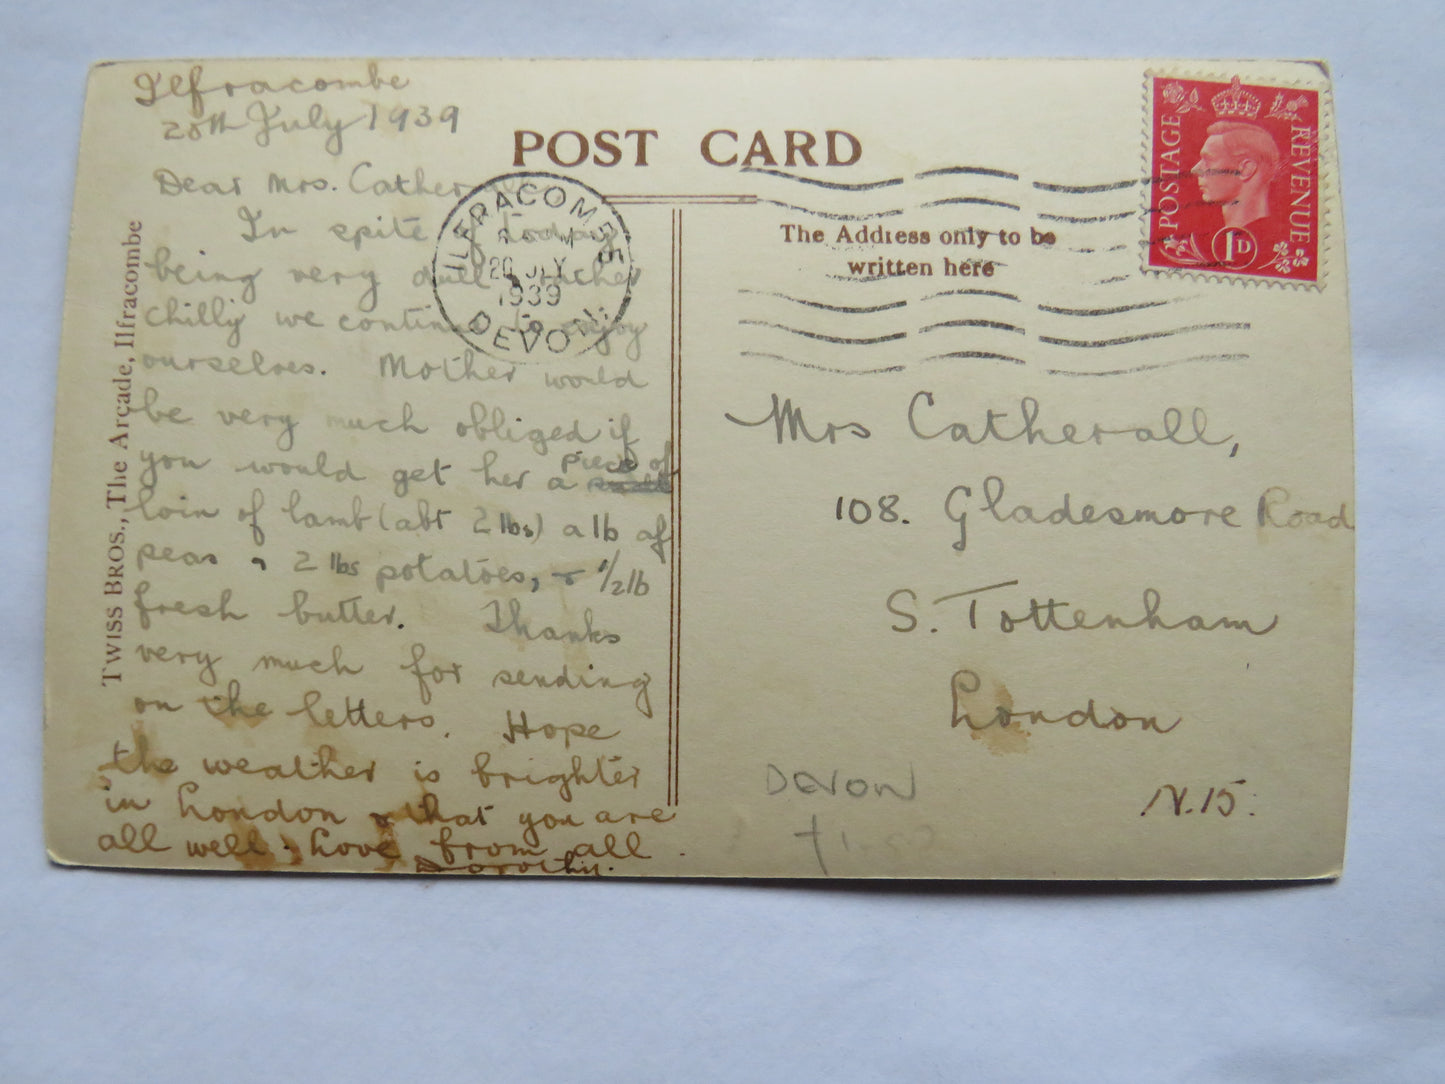 Ilfracombe
20th July 1939
Dear Mrs. Catherall
In spite of today
being very dull & rather
chilly we continue to enjoy
ourselves. Mother would
be very much obliged if
you would get her a piece of
loin of lamb (abt 2 lbs) a lb of
peas, 2 lbs potatoes, & 1/2 lb
fresh butter. Thanks
very much for sending
on the letters. Hope
the weather is brighter
in London & that you are
all well. Love from all.
Dorothy.
TWISS BROS., The Arcade, Ilfracombe
POST CARD
ILFRACOMBE
20 JLY
1939
DEVON
The Address only to be
written here
POSTAGE
REVENUE
1D
Mrs Catherall,
108. Gladesmore Road
S. Tottenham
London
N.15.
DEVON